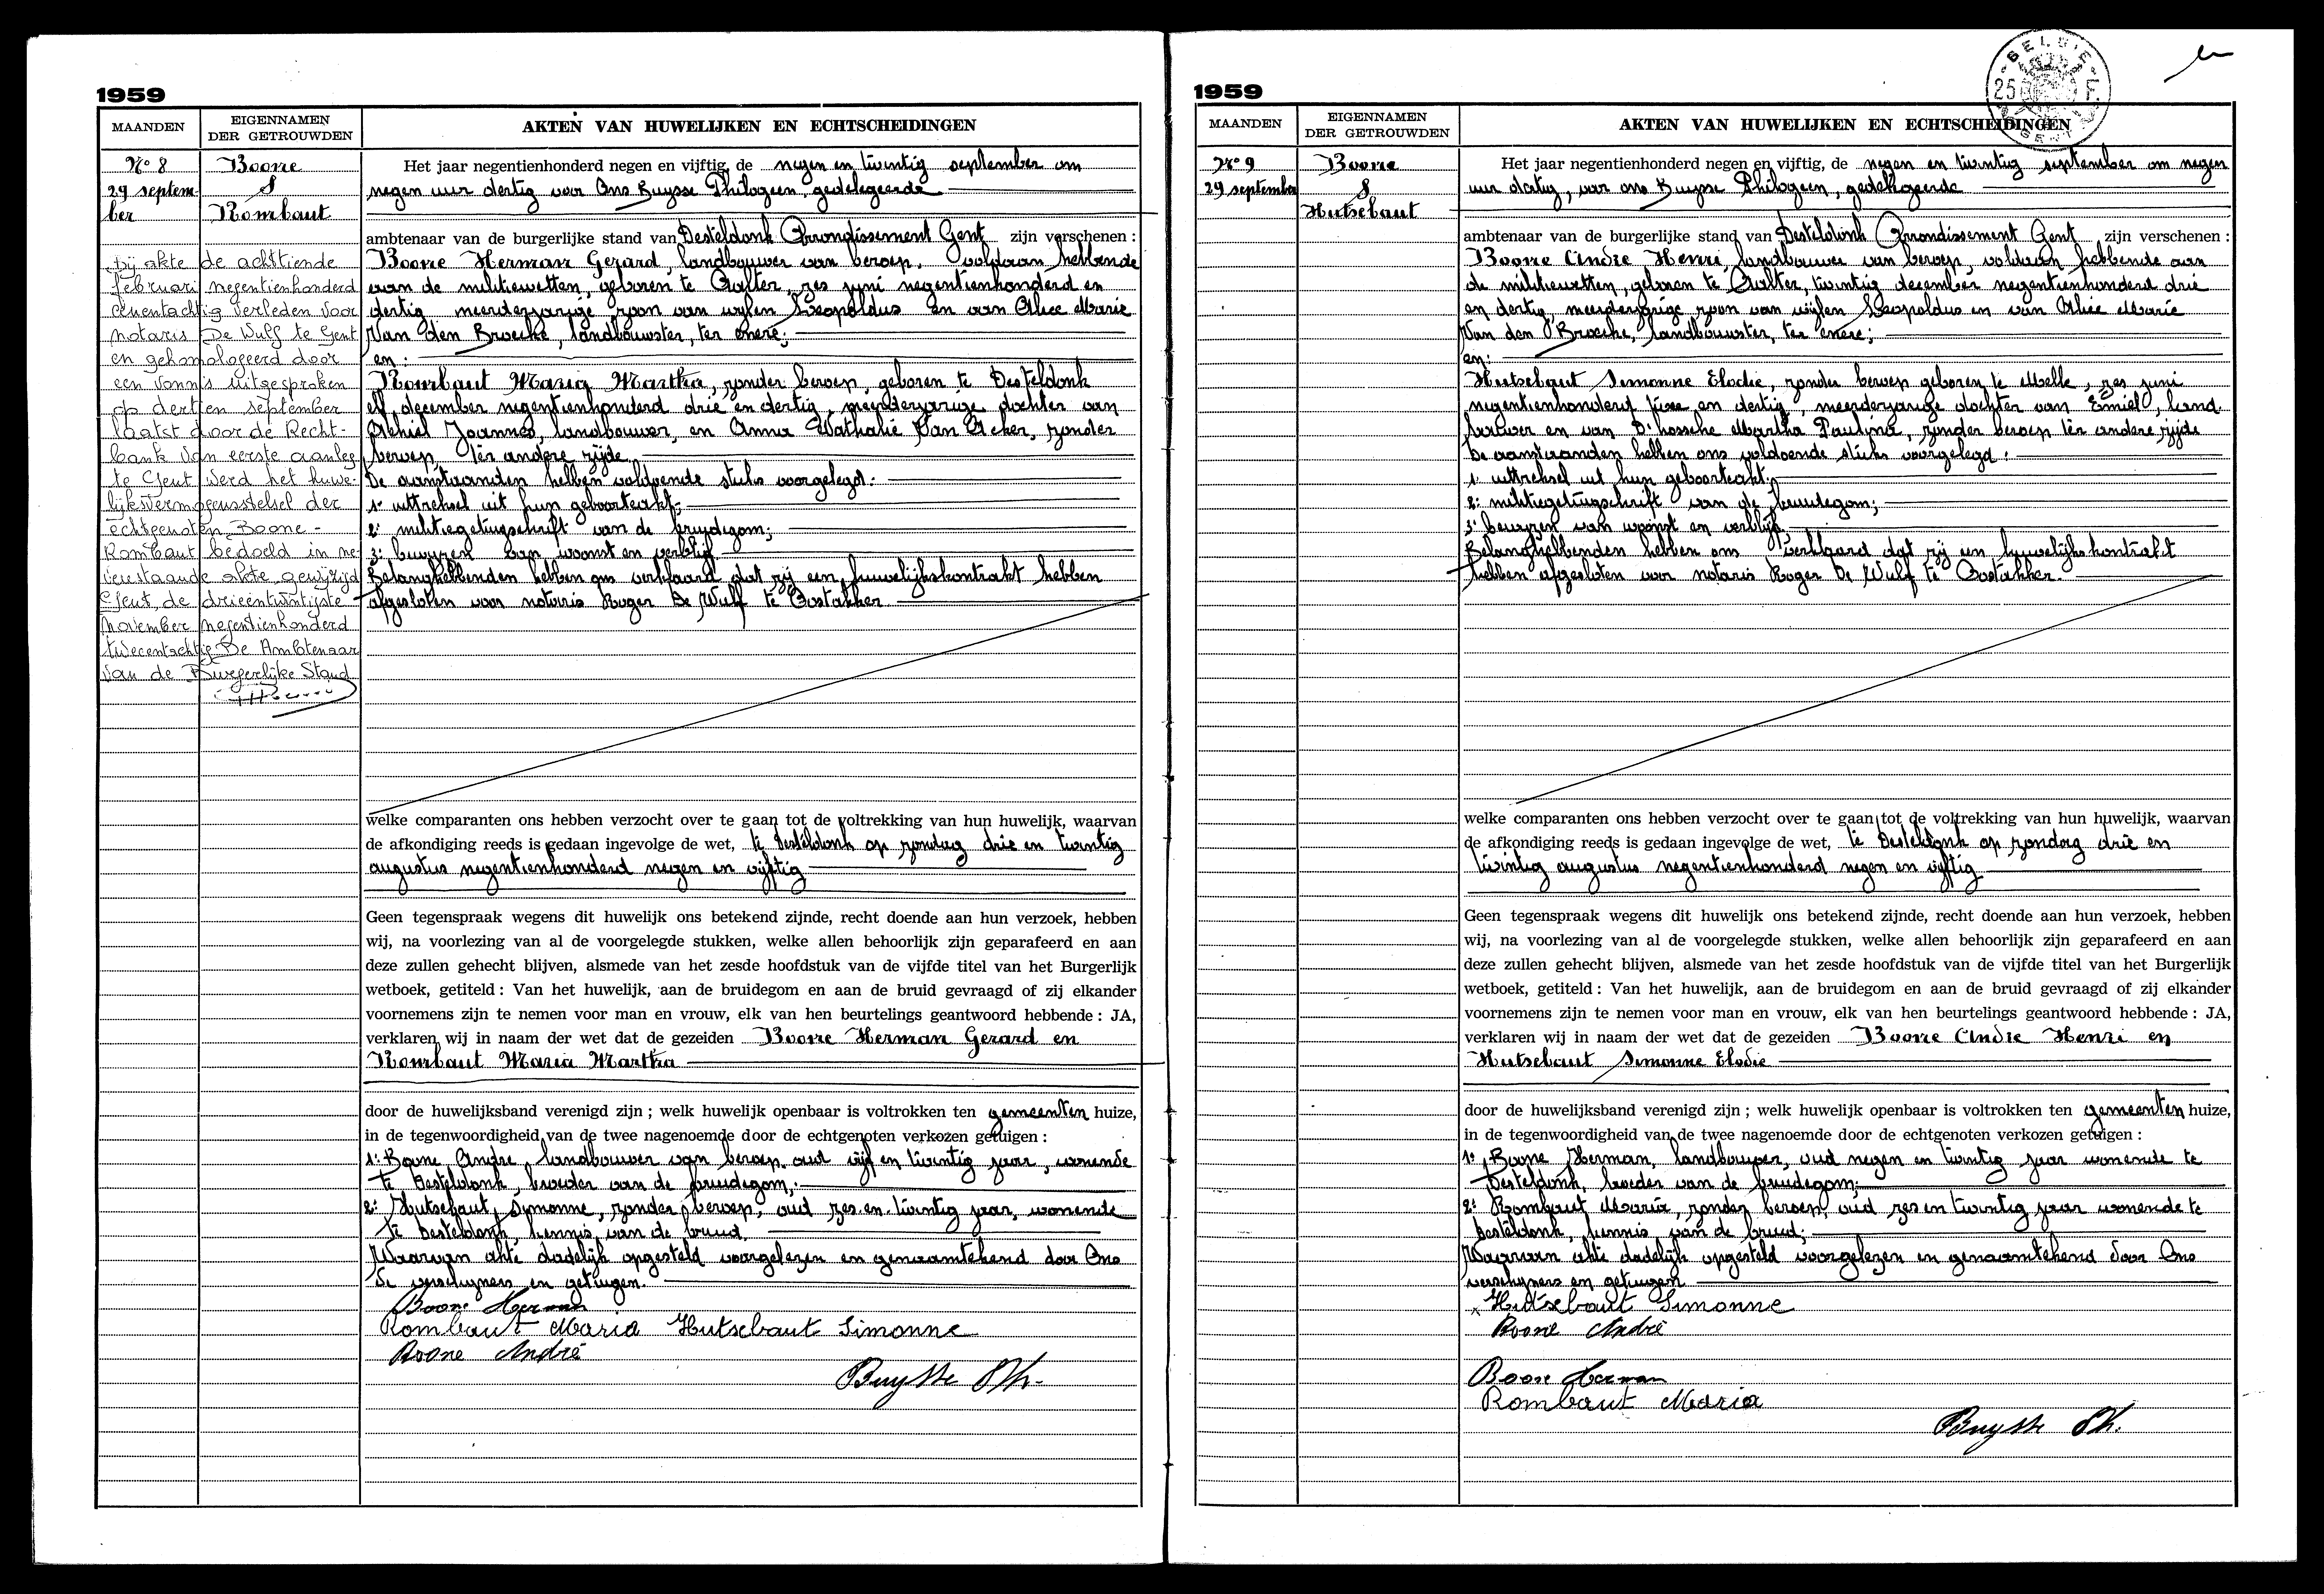 1959
MAANDEN
EIGENNAMEN
DER GETROUWDEN
AKTEN VAN HUWELIJKEN EN ECHTSCHEIDINGEN
N° 8
29 septem-
ber
Boone
&
Rombaut
bij akte de achttiende
februari negentienhonderd
eenentachtig verleden voor
notaris De Wulf te Gent
en gehomologeerd door
een vonnis uitgesproken
op dertien september
laatst door de Recht-
bank van eerste aanleg
te Gent werd het huwe-
lijksvermogensstelsel der
echtgenoten Boone -
Rombaut bedoeld in ne-
venstaande akte gewijzigd
Gent, de drieëntwintigste
november negentienhonderd
tweeentachtig De Ambtenaar
van de Burgerlijke Stand
Het jaar negentienhonderd negen en vijftig, de negen en twintig september om
negen uur dertig voor Ons Buysse Philogeen, gedelegeerde
ambtenaar van de burgerlijke stand van Desteldonk Arrondissement Gent zijn verschenen :
Boone Herman Gerard, landbouwer van beroep, voldaan hebbende
aan de militiewetten, geboren te Aalter, zes juni negentienhonderd en
dertig, meerderjarige zoon van wijlen Leopoldus en van Alice Marie
Van den Broecke, landbouwster, ter enere;
en :
Rombaut Maria Martha, zonder beroep, geboren te Desteldonk
elf december negentienhonderd drie en dertig, meerderjarige dochter van
Achiel Joannes, landbouwer, en Anna Nathalie Van Acker, zonder
beroep, ter andere zijde
De aanstaanden hebben voldoende stuks voorgelegd:
1: uittreksel uit hun geboorteakt;
2: militiegetuigschrift van de bruidegom;
3: bewijzen van woonst en verblijf
Belanghebbenden hebben ons verklaard dat zij een huwelijkskontrakt hebben
afgesloten voor notaris Roger De Wulf te Oostakker.
welke comparanten ons hebben verzocht over te gaan tot de voltrekking van hun huwelijk, waarvan
de afkondiging reeds is gedaan ingevolge de wet, te Desteldonk op zondag drie en twintig
augustus negentienhonderd negen en vijftig
Geen tegenspraak wegens dit huwelijk ons betekend zijnde, recht doende aan hun verzoek, hebben
wij, na voorlezing van al de voorgelegde stukken, welke allen behoorlijk zijn geparafeerd en aan
deze zullen gehecht blijven, alsmede van het zesde hoofdstuk van de vijfde titel van het Burgerlijk
wetboek, getiteld : Van het huwelijk, aan de bruidegom en aan de bruid gevraagd of zij elkander
voornemens zijn te nemen voor man en vrouw, elk van hen beurtelings geantwoord hebbende : JA,
verklaren wij in naam der wet dat de gezeiden Boone Herman Gerard en
Rombaut Maria Martha
door de huwelijksband verenigd zijn ; welk huwelijk openbaar is voltrokken ten gemeenten huize,
in de tegenwoordigheid van de twee nagenoemde door de echtgenoten verkozen getuigen :
1: Boone Andre, landbouwer van beroep, oud vijf en twintig jaar, wonende
te Desteldonk, broeder van de bruidegom;
2: Hutsebaut, Symonne, zonder beroep, oud zes en twintig jaar, wonende
te Desteldonk, kennis van de bruid.
Waarvan akte dadelijk opgesteld voorgelezen en genaamtekend door Ons
de verschijners en getuigen.
Boone Herman
Rombaut Maria Hutsebaut Simonne
Boone André
Buysse Ph.
1959
BELGIE
25 F.
GENT
MAANDEN
EIGENNAMEN
DER GETROUWDEN
AKTEN VAN HUWELIJKEN EN ECHTSCHEIDINGEN
N° 9
29 september
Boone
&
Hutsebaut
Het jaar negentienhonderd negen en vijftig, de negen en twintig september om negen
uur dertig, voor ons Buysse Philogeen, gedelegeerde
ambtenaar van de burgerlijke stand van Desteldonk Arrondissement Gent zijn verschenen :
Boone Andre Henri, landbouwer van beroep, voldaan hebbende aan
de militiewetten, geboren te Aalter, twintig december negentienhonderd drie
en dertig, meerderjarige zoon van wijlen Leopoldus en van Alice Marie
Van den Broecke, landbouwster, ter enere;
en:
Hutsebaut Simonne Elodie, zonder beroep geboren te Melle, zes juni
negentienhonderd en dertig, meerderjarige dochter van Emiel, land
bouwer en van D'hossche Martha Paulina, zonder beroep ter andere zijde
De aanstaanden hebben ons voldoende stuks voorgelegd :
1: uittreksel uit hun geboorteakt;
2: militiegetuigschrift van de bruidegom;
3: bewijzen van woonst en verblijf
Belanghebbenden hebben ons verklaard dat zij een huwelijkskontrakt
hebben afgesloten voor notaris Roger De Wulf te Oostakker.
welke comparanten ons hebben verzocht over te gaan tot de voltrekking van hun huwelijk, waarvan
de afkondiging reeds is gedaan ingevolge de wet, te Desteldonk op zondag drie en
twintig augustus negentienhonderd negen en vijftig
Geen tegenspraak wegens dit huwelijk ons betekend zijnde, recht doende aan hun verzoek, hebben
wij, na voorlezing van al de voorgelegde stukken, welke allen behoorlijk zijn geparafeerd en aan
deze zullen gehecht blijven, alsmede van het zesde hoofdstuk van de vijfde titel van het Burgerlijk
wetboek, getiteld : Van het huwelijk, aan de bruidegom en aan de bruid gevraagd of zij elkander
voornemens zijn te nemen voor man en vrouw, elk van hen beurtelings geantwoord hebbende : JA,
verklaren wij in naam der wet dat de gezeiden Boone Andre Henri en
Hutsebaut Simonne Elodie
door de huwelijksband verenigd zijn ; welk huwelijk openbaar is voltrokken ten gemeenten huize,
in de tegenwoordigheid van de twee nagenoemde door de echtgenoten verkozen getuigen :
1° Boone Herman, landbouwer, oud negen en twintig jaar wonende te
Desteldonk, broeder van de bruidegom;
2: Rombaut Maria, zonder beroep, oud zes en twintig jaar wonende te
Desteldonk, kennis van de bruid;
Waarvan akte dadelijk opgesteld voorgelezen en genaamtekend door Ons
verschijners en getuigen
x Hutsebaut Simonne
Boone André
Boone Herman
Rombaut Maria
Buysse Ph.